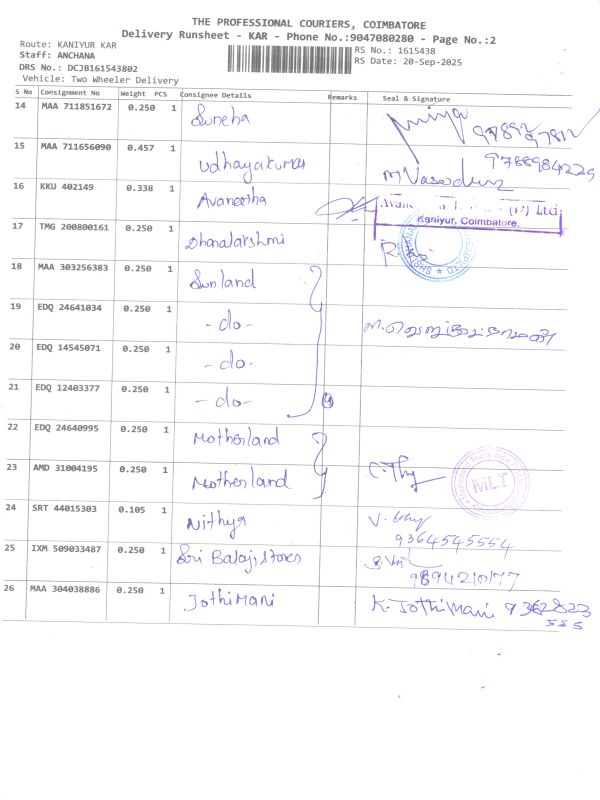 THE PROFESSIONAL COURIERS, COIMBATORE
Delivery Runsheet - KAR - Phone No.:9047080280 - Page No.:2
Route: KANIYUR KAR
RS No.: 1615438
Staff: ANCHANA
RS Date: 20-Sep-2025
DRS No.: DCJB161543802
Vehicle: Two Wheeler Delivery
S No Consignment No Weight PCS Consignee Details Remarks Seal & Signature
14 MAA 711851672 0.250 1 Suneha
15 MAA 711656090 0.457 1 Udhayakumar 9788984225
16 KKU 402149 0.338 1 Avaneetha
Kaniyur, Coimbatore.
17 TMG 200800161 0.250 1 Dhanalakshmi
18 MAA 303256383 0.250 1 Sunland
19 EDQ 24641034 0.250 1 -do-
20 EDQ 14545071 0.250 1 -do-
21 EDQ 12403377 0.250 1 -do-
22 EDQ 24640995 0.250 1 Motherland
23 AMD 31004195 0.250 1 Motherland MLT
24 SRT 44015303 0.105 1 Nithya
9364545554
25 IXM 509033487 0.250 1 Sri Balaji stores
26 MAA 304038886 0.250 1 Jothimani K. Jothimani 9362823
555